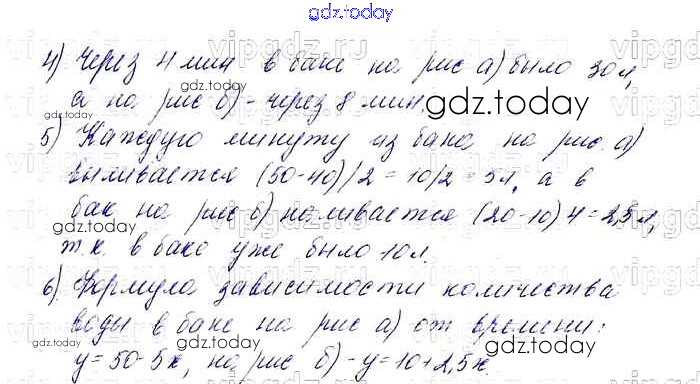 gdz.today
4) Через 4 мин в баке на рис а) было 30 л,
а на рис б) - через 8 мин.
5) Каждую минуту из бака на рис. а)
выливается (50-40)/2 = 10/2 = 5 л, а в
бак на рис б) наливается (20-10) 4 = 2,5 л,
т.к. в баке уже было 10 л.
6) Формула зависимости количества
воды в баке на рис а) от времени:
y = 50-5x, на рис б) - y = 10+2,5x.
gdz.today
gdz.today
gdz.today
gdz.today
gdz.today
gdz.today